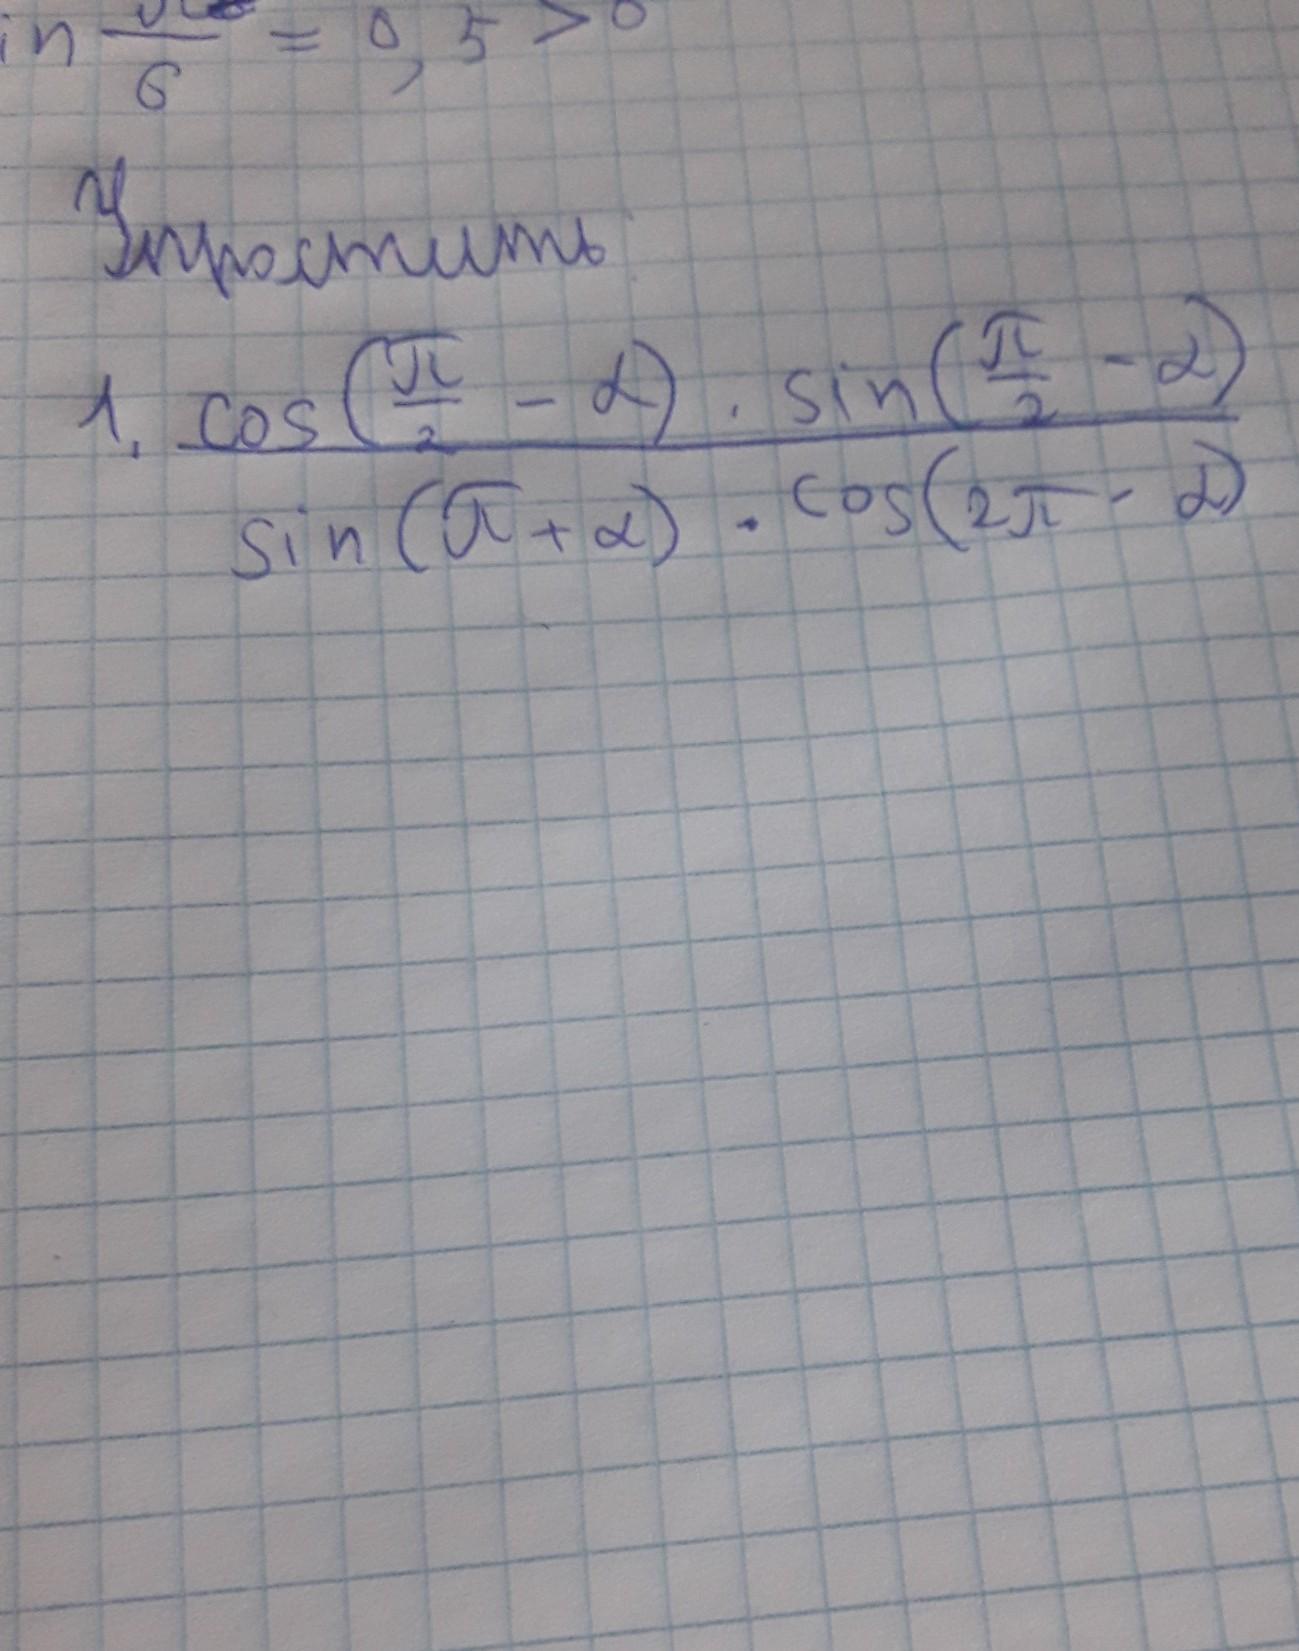 in π/6 = 0,5 > 0
Упростить
1. cos(π/2 - α) · sin(π/2 - α)
sin(π + α) · cos(2π - α)